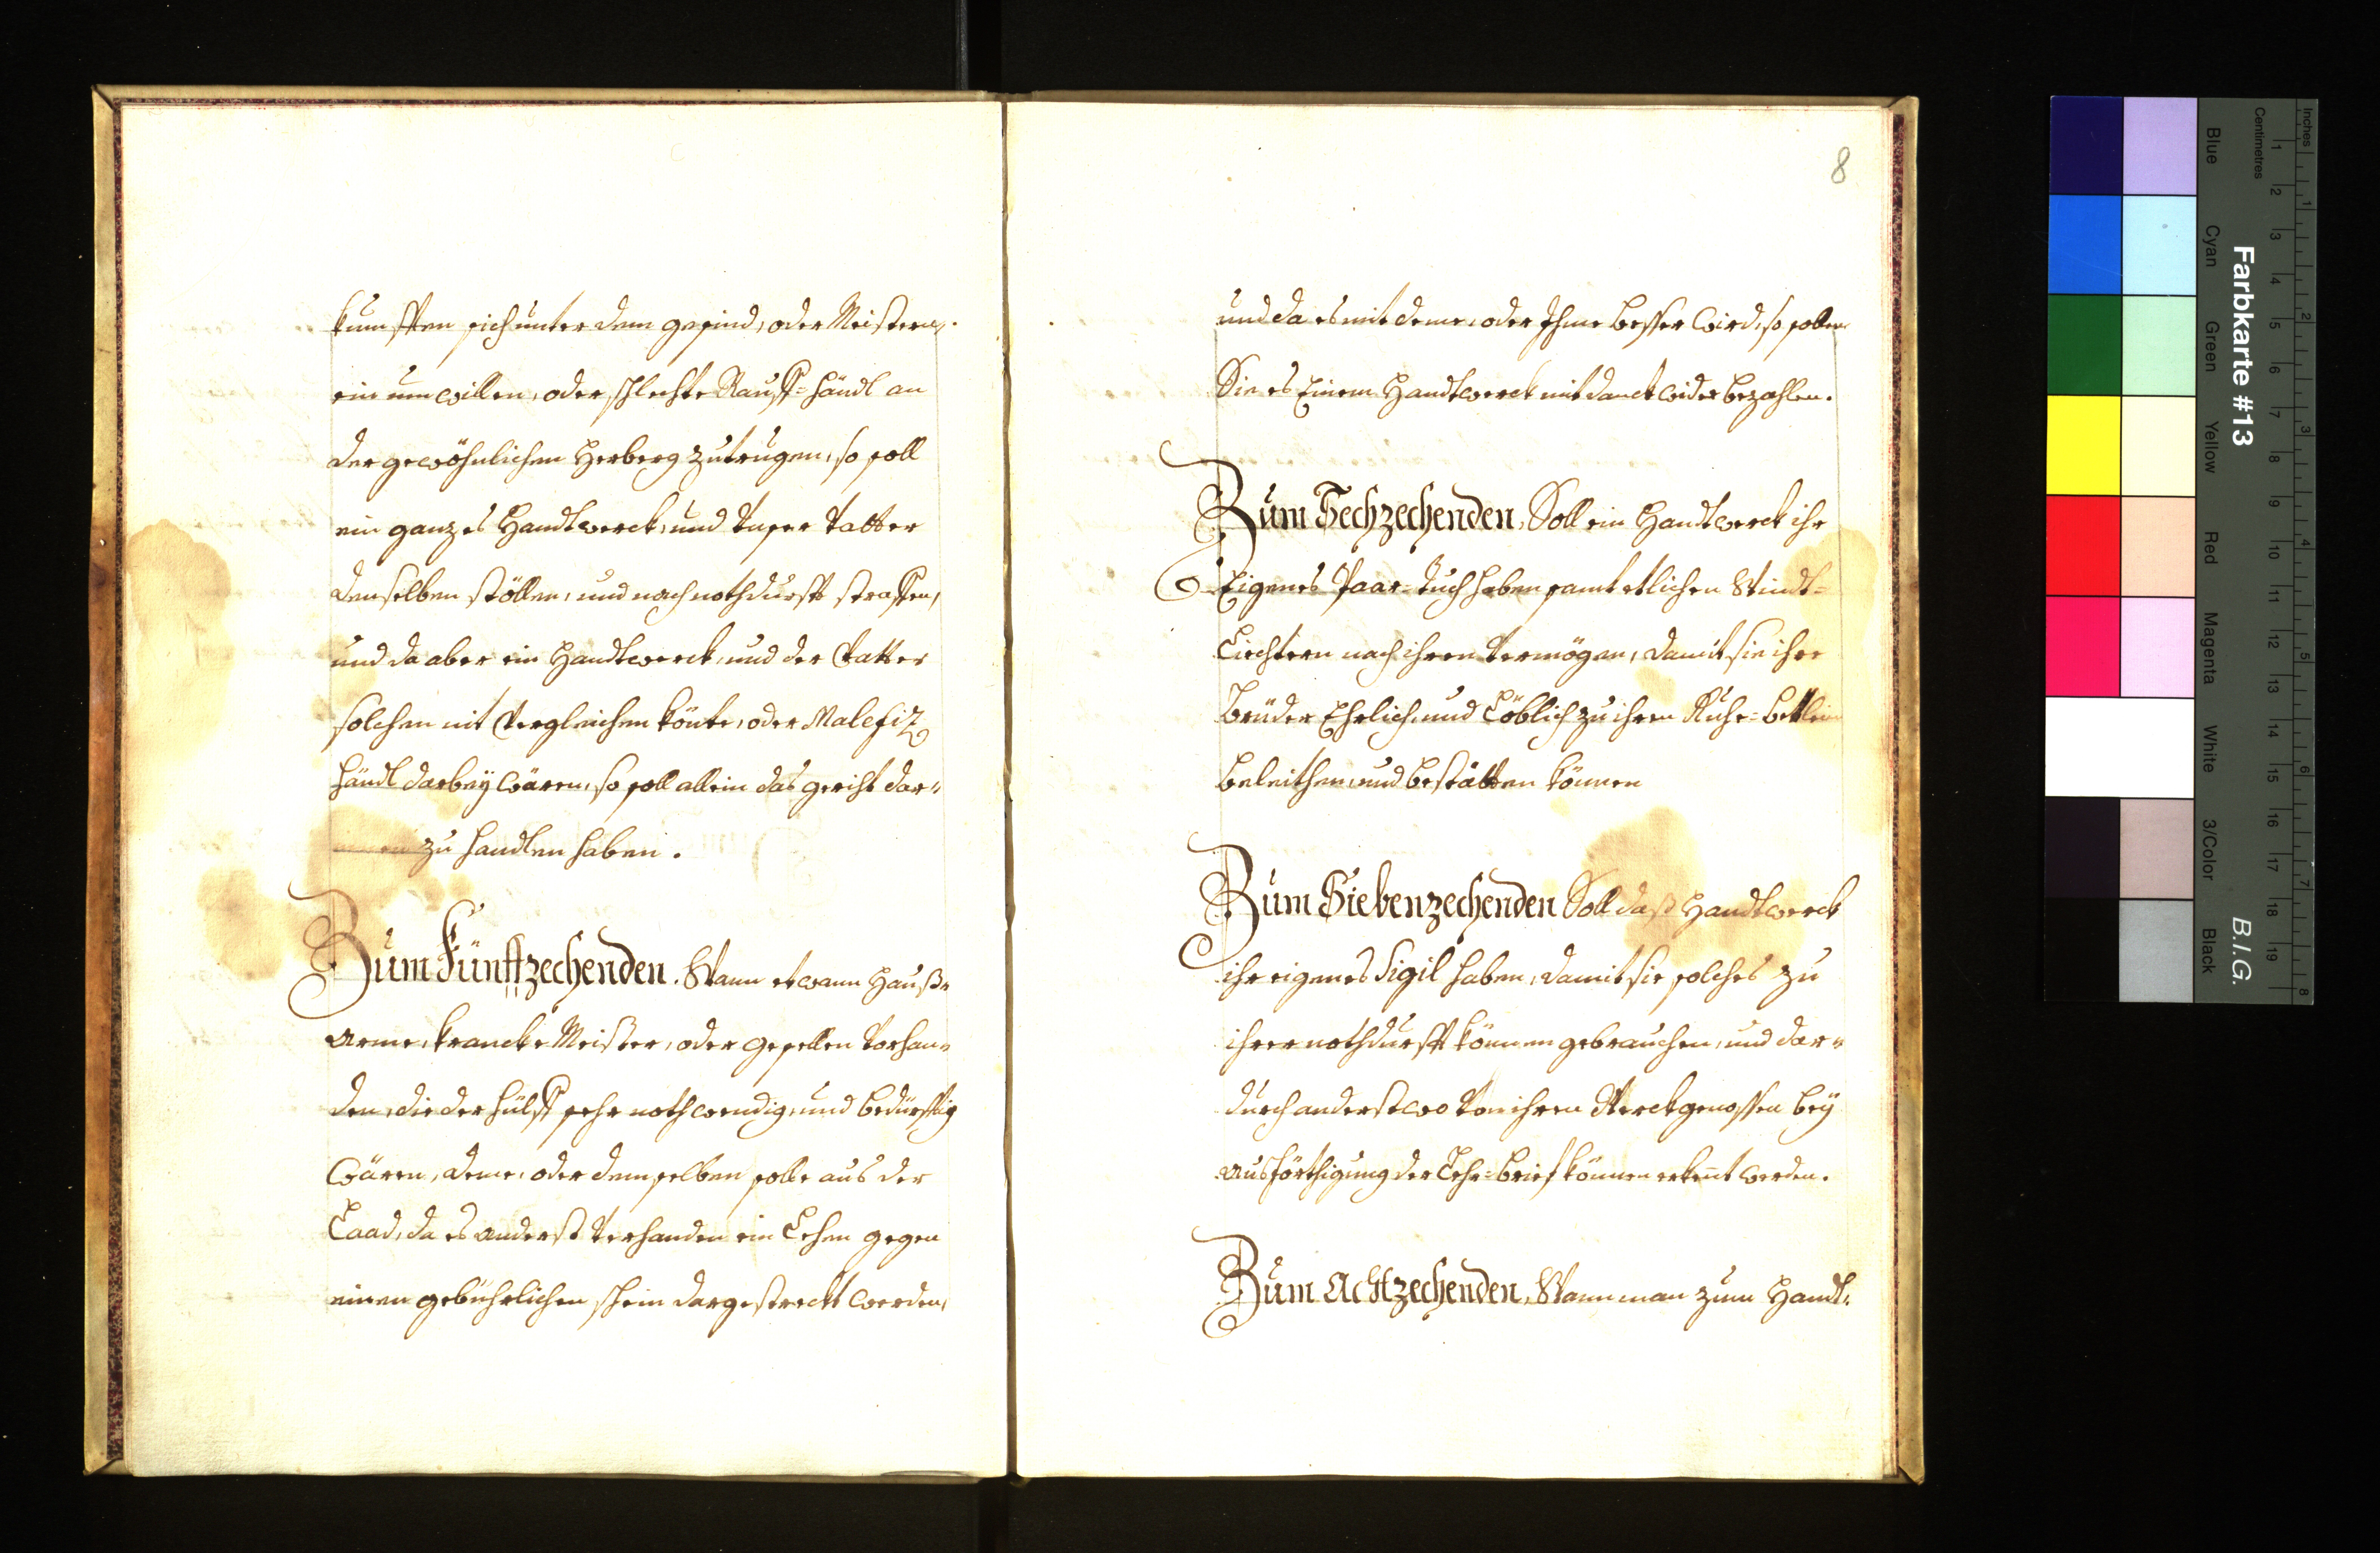 kumfften sich unter dem gesind, oder Meistern,
ein umwillen, oder schlechte Rauff=händl an
der gewöhnlichen Herberg zutrugen, so soll
ein ganzes Handtwerck, und unser Vatter
denselben stöllen, und nach nothdurfft straffen,
und da aber ein Handtwerck, und der Vatter
solchen nit Vergleichen könte, oder Malefiz
händl darbeÿ wären, so soll allein das gericht dar=
zu handlen haben.
Zum Fünfftzechenden. Wann etwann Hauß=
Arme, krancke Meister, oder gesellen Vorhan=
den, die der hülff sehr nothwendig, und bedürfftig
wären, deme, oder demselben solle aus der
Laad, da es anderst Verhanden ein Lehen gegen
einen gebührlichen schein dargestreckt werden,
8
und da es mit deme, oder Ihme besser wird, so sollen
Sie es Einem Handtwerck mit danck wider bezahlen.
Zum Sechzechenden, Soll ein Handtwerck ihr
Eigenes Paar=tuch haben samt etlichen Windt=
Liechtern nach ihren Vermögen, damit sie ihre
Brüder Ehrlich, und Löblich zu ihren Ruhe=bettlein
beleithen, und bestätten können
Zum Siebenzechenden Soll daß Handtwerck
ihr eigenes Sigil haben, damit sie solches zu
ihrer nothdurfft können gebrauchen, und dar=
durch anderstwo Von ihren Werckgenossen beÿ
Ausförthigung der Lehr=brief können erkent werden.
Zum Achtzechenden, Wann man zum Handt=
Farbkarte #13
B.I.G.
Inches 1 2 3 4 5 6 7 8
Centimetres 1 2 3 4 5 6 7 8 9 10 11 12 13 14 15 16 17 18 19
Blue Cyan Green Yellow Red Magenta White 3/Color Black